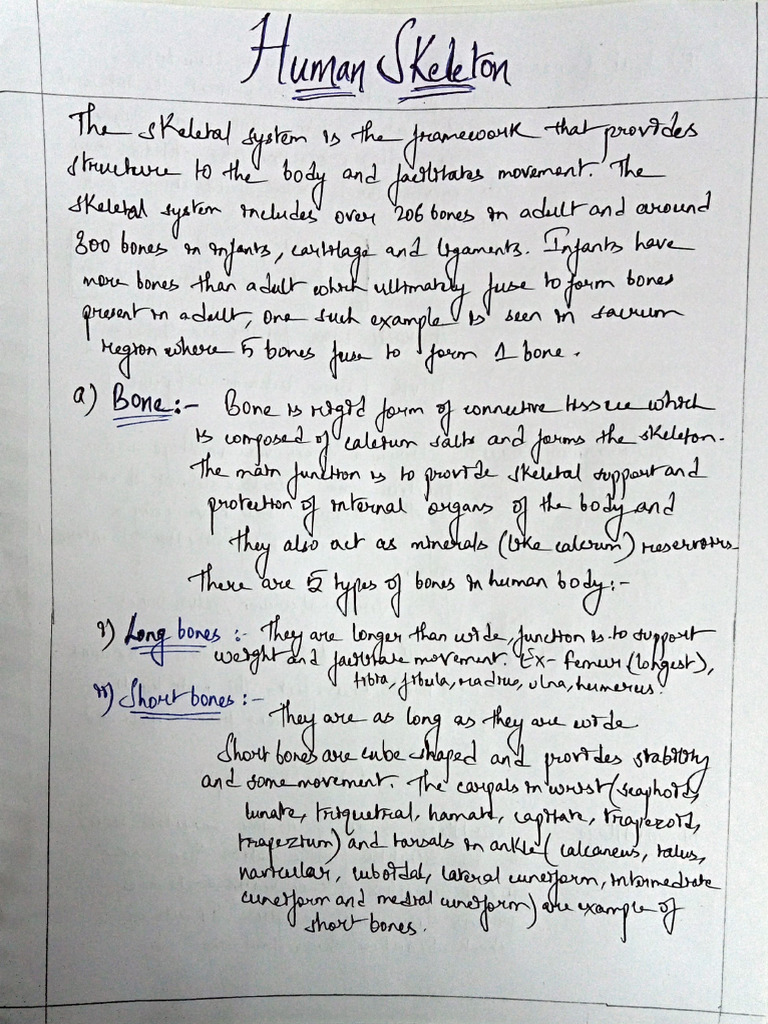 Human Skeleton
The skeletal system is the framework that provides
structure to the body and facilitates movement. The
skeletal system includes over 206 bones in adult and around
300 bones in infants, cartilage and ligaments. Infants have
more bones than adult which ultimately fuse to form bones
present in adult, one such example is seen in sacrum
region where 5 bones fuse to form 1 bone.
a) Bone:- Bone is rigid form of connective tissue which
is composed of calcium salts and forms the skeleton.
The main function is to provide skeletal support and
protection of internal organs of the body and
they also act as minerals (like calcium) reservoirs.
There are 5 types of bones in human body:-
i) Long bones :- They are longer than wide, function is to support
weight and facilitate movement. Ex- femur (longest),
tibia, fibula, radius, ulna, humerus.
ii) Short bones :-
They are as long as they are wide
Short bones are cube shaped and provides stability
and some movement. The carpals in wrist (scaphoid,
lunate, triquetral, hamate, capitate, trapezoid,
trapezium) and tarsals in ankle (calcaneus, talus,
navicular, cuboidal, lateral cuneiform, intermediate
cuneiform and medial cuneiform) are example of
short bones.